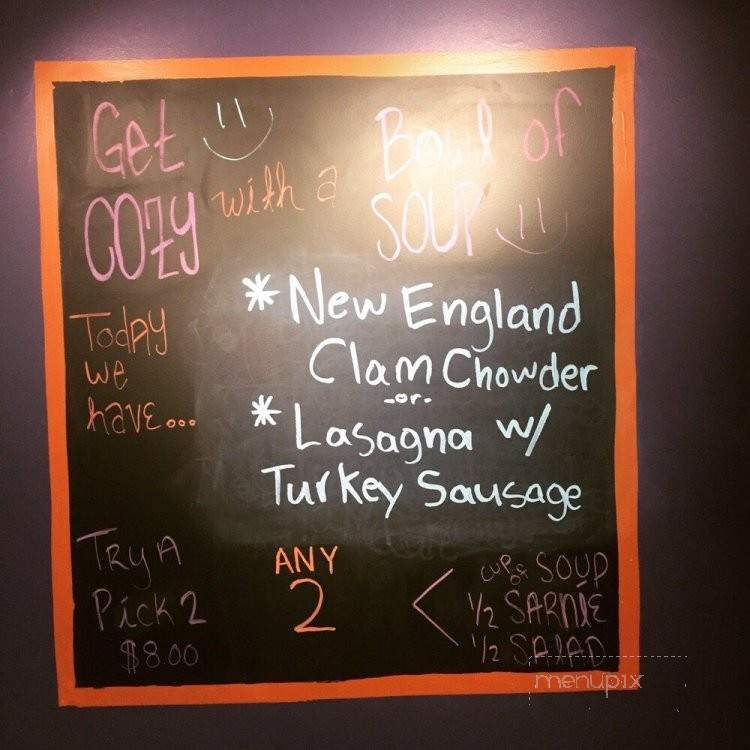 Get
COZY with a
Bowl of
SOUP
Today
we
have...
* New England
Clam Chowder
-or-
* Lasagna w/
Turkey Sausage
TRY A
Pick 2
$8.00
ANY
2
< cup of SOUP
1/2 SARNIE
1/2 SALAD
menupix